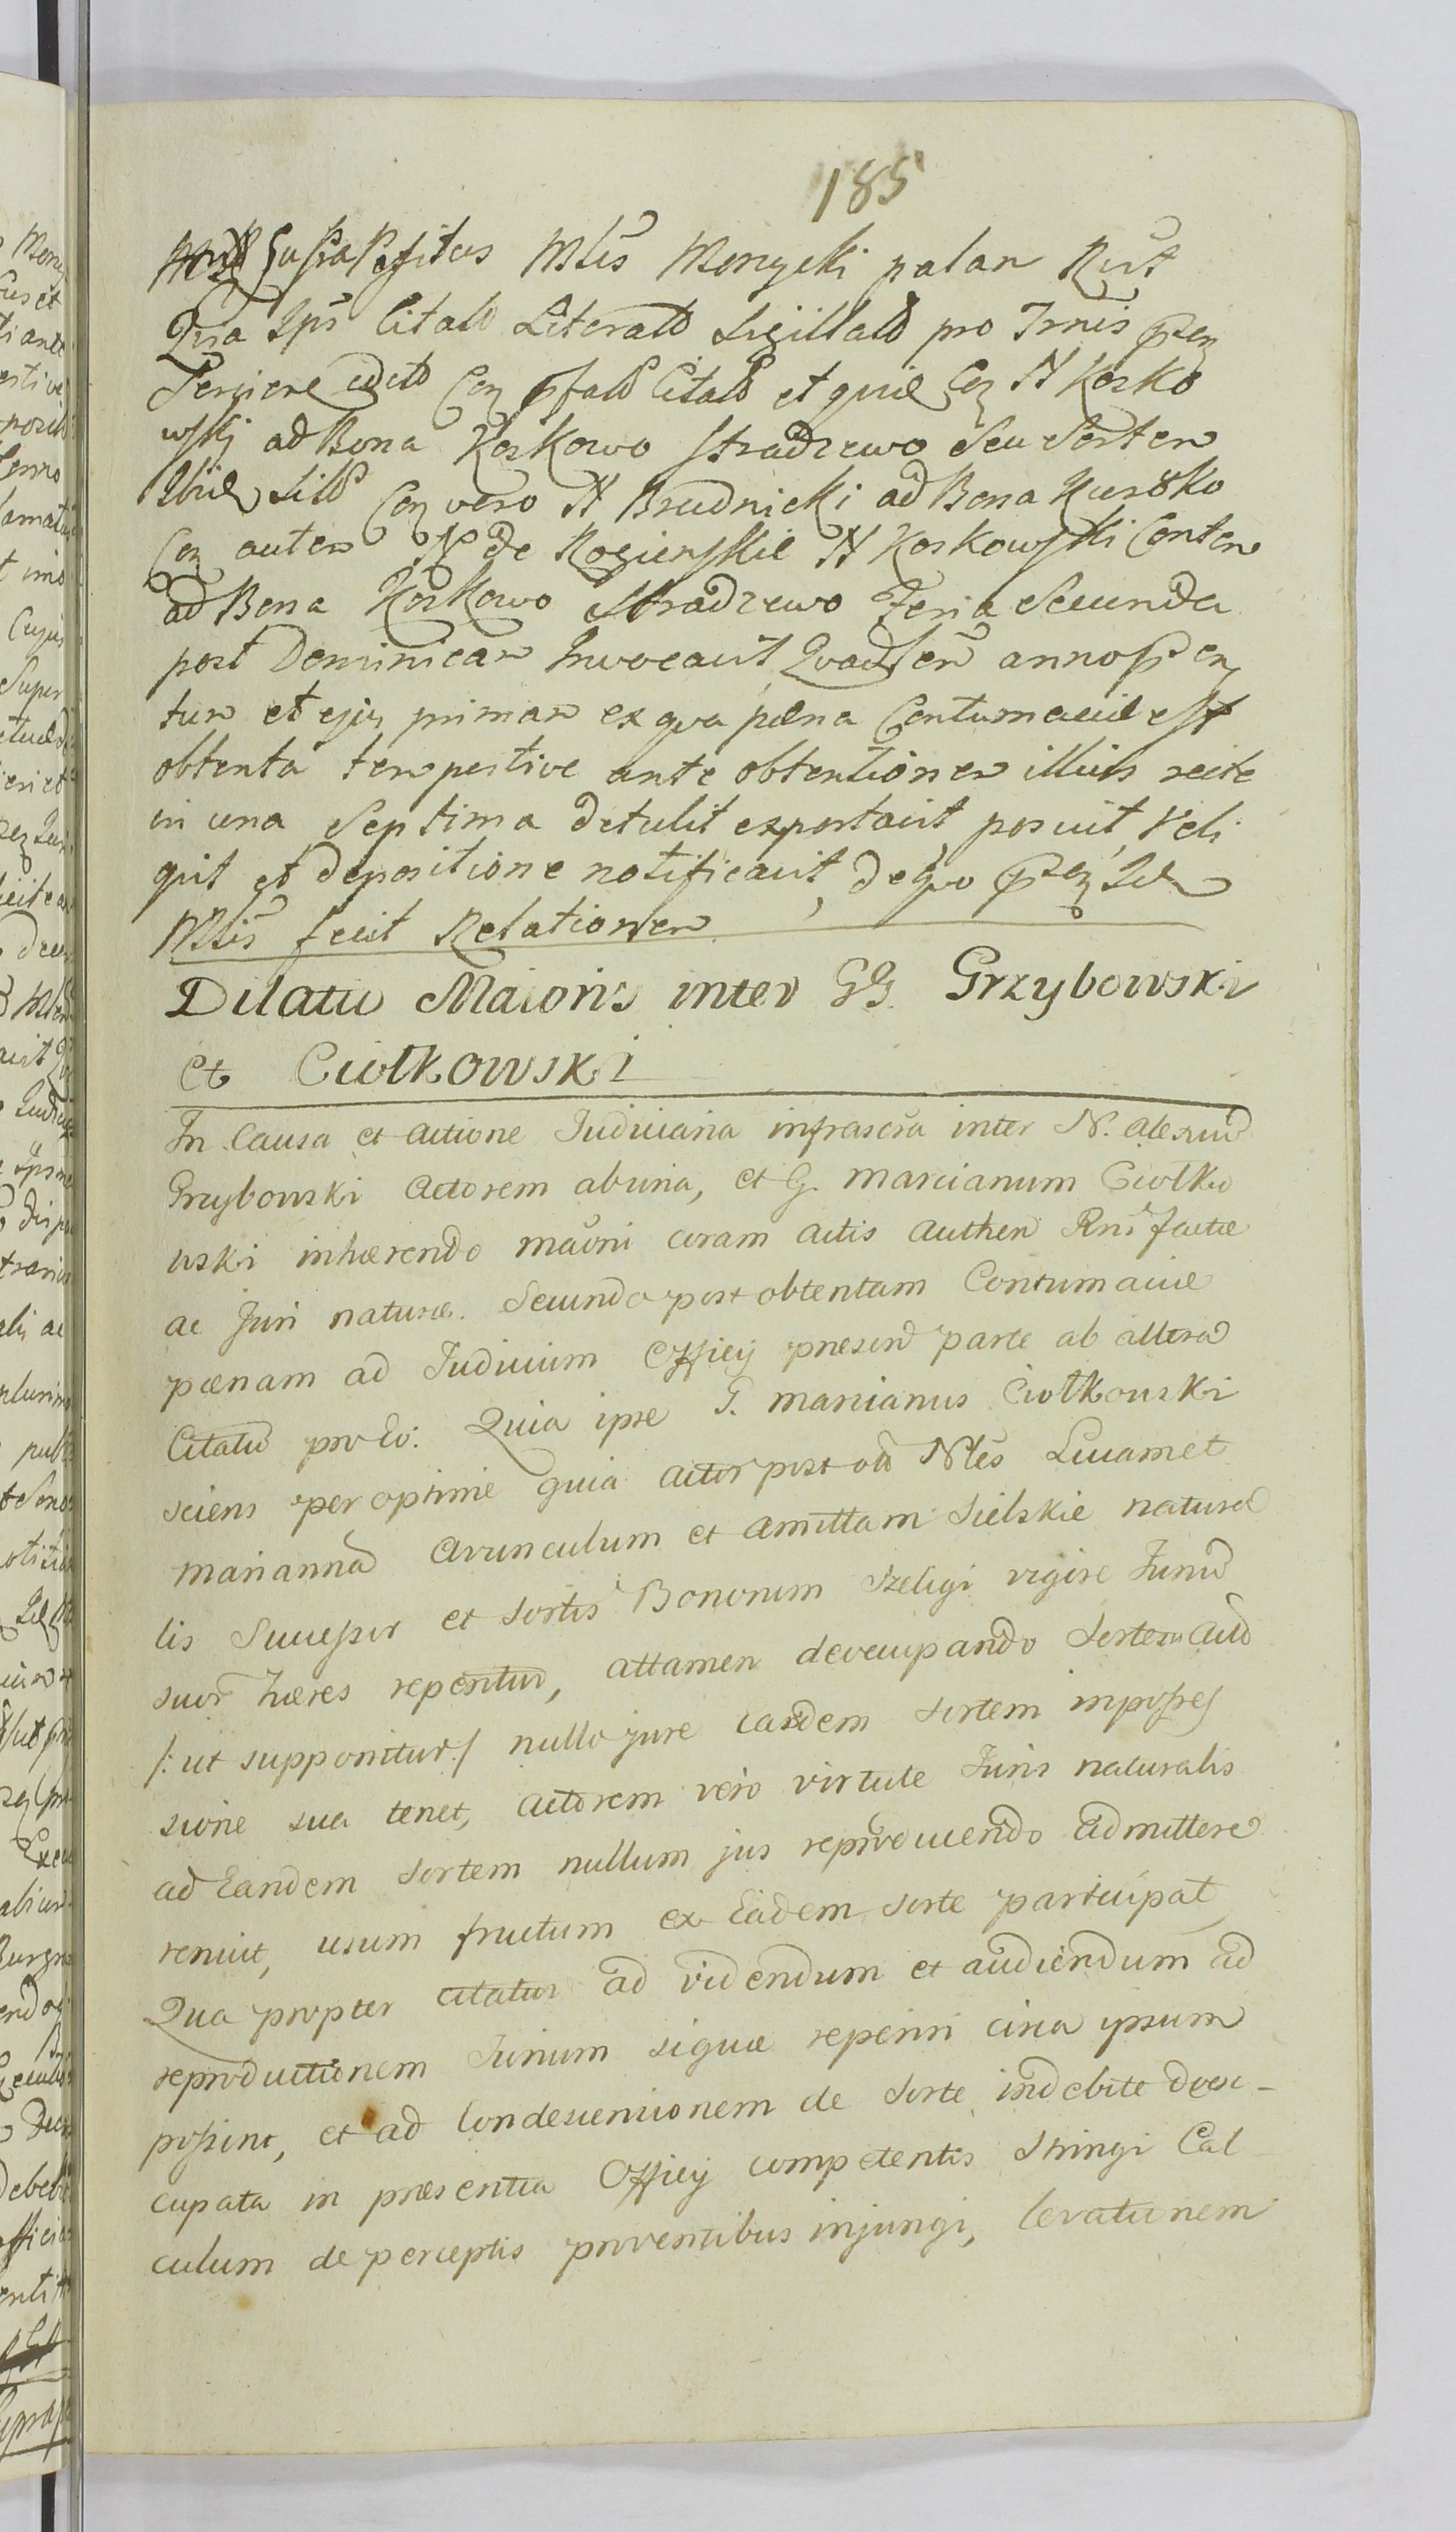 185
Młis Monycki palam Rcit
Quia Ips Citatio Literatio Sigillatio pro Trnis
Con Citatio et quil Con N Kosko
wskj ad Bona Koskowo Stradzewo Seu Sortem
Ibid Sitis Con vero N Brudnicki ad Bona
Con autem N de N Koskowski Conten
ad Bona Koskowo Stradzewo Feria Secunda
post Dominicam Invocavit Quadsen anno
tum et ejus primam ex qva pæna Contumaciæ est
obtenta tempestive ante obtentionem illius recte
in una Septima detulit exportavit posuit, reli
qvit et depositione notificavit, de qvo
Młis fecit Relationem
Dilatio Maioris inter GG. Grzybowski
et Ciołkowski
In Causa et actione Judiciaria infrascra inter N. Alexum
Grzybowski Actorem ab una, et G. Marcianum Ciołko
wski inhærendo coram actis Authen Rnis factæ
ac Juri naturæ. Secundo post obtentam Contumaciæ
pœnam ad Judicium Officij præsens parte ab altera
Citatu pro Eo: Quia ipse G. Marcianus Ciołkowski
sciens per optime quia Actor post Lucam et
Mariannã Avunculum et Amittam Sielskie natura
lis Succeſsor et Sortis Bonorum Szeligi vigore Jurium
suor hæres reperitur, attamen deoccupando Sortem
/: ut supponitur :/ nullo jure Eandem Sortem in poſseſ
sione sua tenet, Actorem vero virtute Juris naturalis
ad Eandem Sortem nullum jus reproducendo admittere
renuit, usum fructum ex Eadem sorte participat
Qua propter citatur ad videndum et audiendum ad
reproductionem Jurium siquæ reperiri circa ipsum
poſsint, et ad Condescensionem de Sorte indebite deoc-
cupata in præsentia Officij competentis stringi Cal
culum de perceptis proventibus injungi, levationem